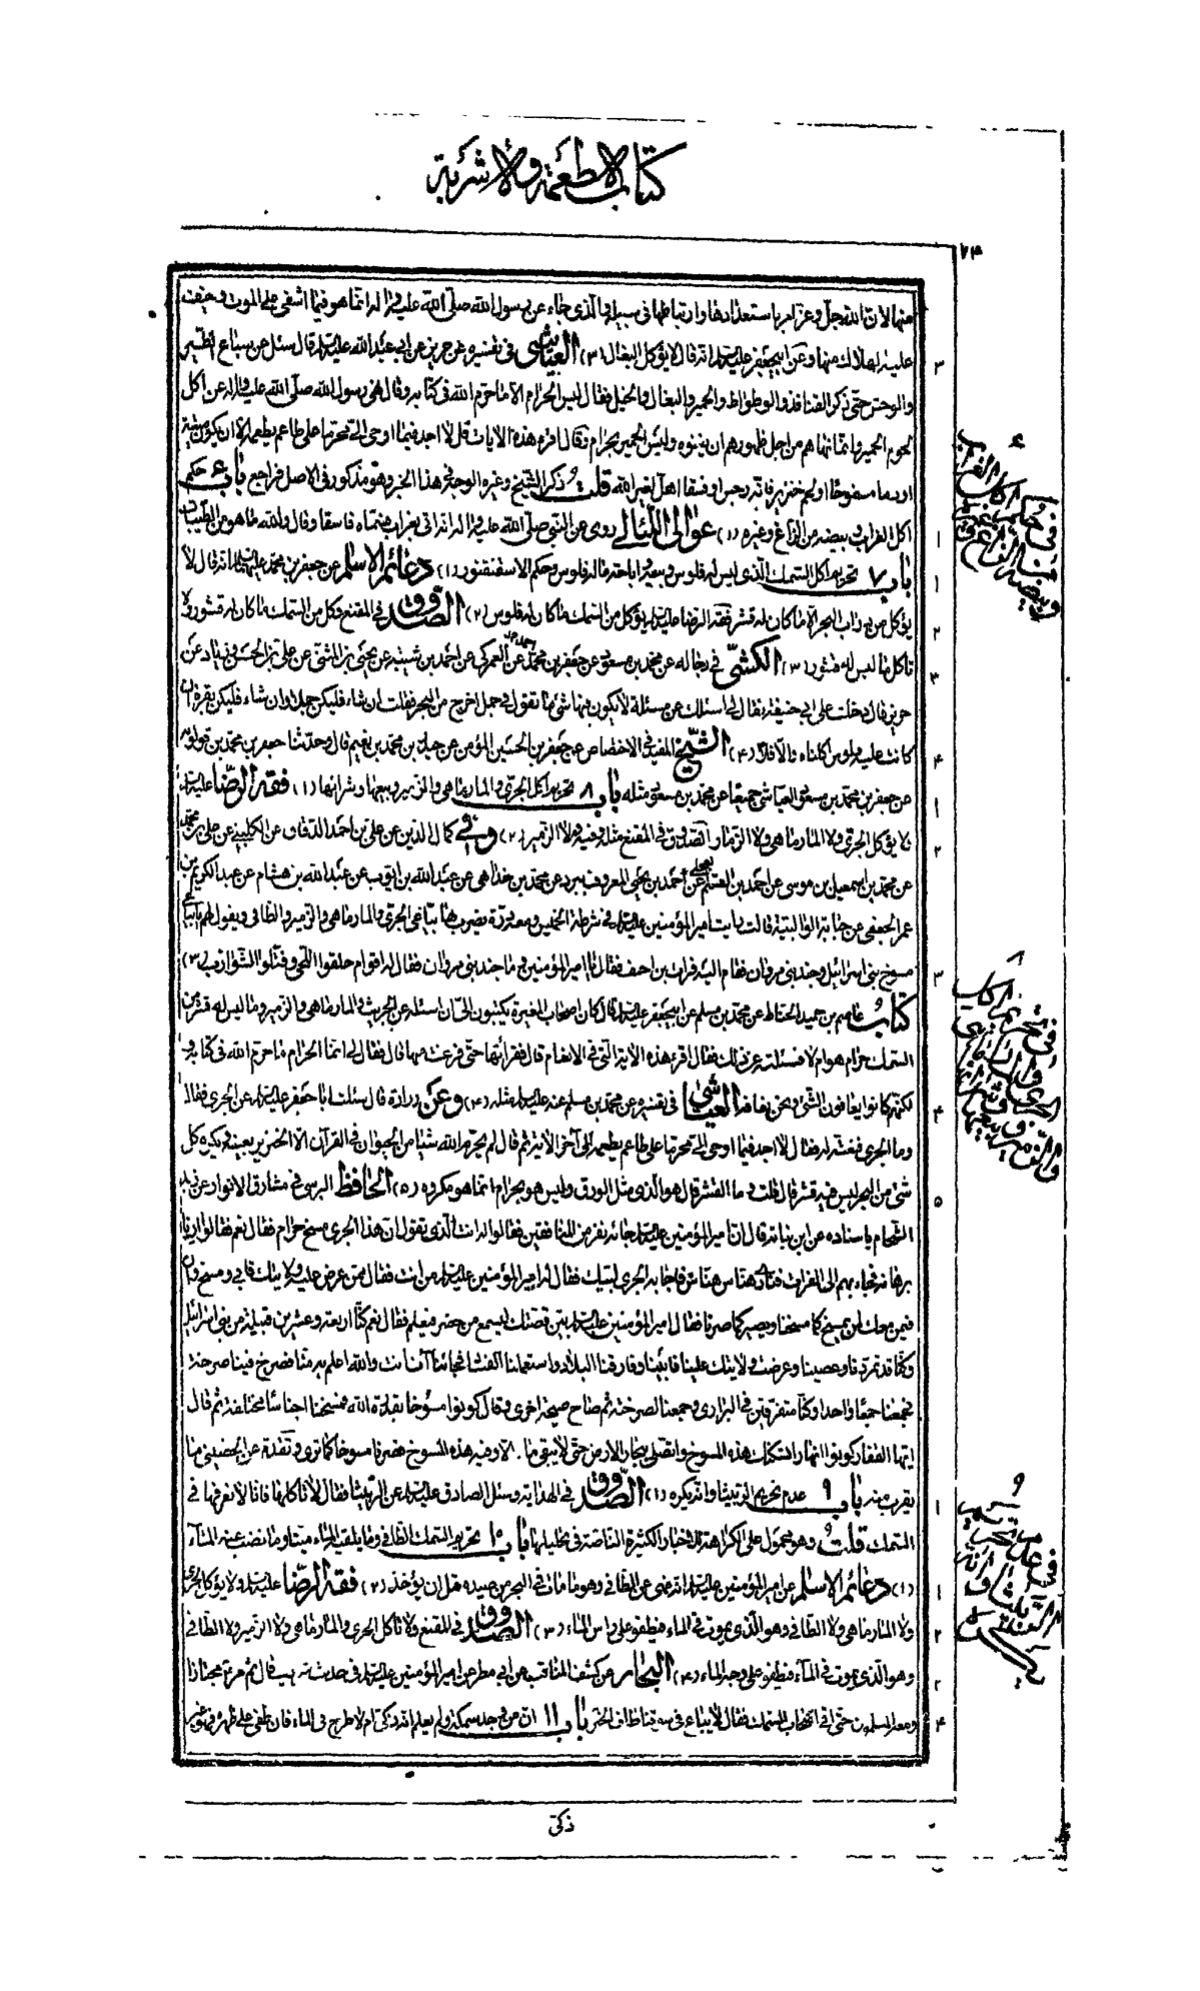 كتاب الأطعمة والأشربة
٧٤
منها لان الله جل وعز امر باستعدادها وارتباطها في سبيله والذي جاء عن رسول الله صلى الله عليه واله انما هو فيما اشفى على الموت وخيفت
عليه الهلاك منها وعن ابيجعفر عليه السلام انه قال لا يؤكل البغال (٣) العياشي في تفسيره عن حريز عن ابي عبد الله عليه السلام قال سئل عن سباع الطير
والوحش حتى ذكر القنافذ والوطواط والحمير والبغال والخيل فقال ليس الحرام الا ما حرم الله في كتابه وقال نهى رسول الله صلى الله عليه واله عن اكل
لحوم الحمير وانما نهاهم من اجل ظهورهم ان يفنوه وليس الحمير بحرام وقال اقرء هذه الايات قل لا اجد فيما اوحي الي محرما على طاعم يطعمه الا ان يكون ميتة
او دما مسفوحا او لحم خنزير فانه رجس او فسقا اهل لغير الله قلت ذكر الشيخ وغيره الوجه في هذا الخبر وهو مذكور في الاصل فراجع باب ٦ حكم
اكل الغراب وبيضه من الزاغ وغيره (١) عوالي اللئالي روى عن النبي صلى الله عليه واله انه اتى بغراب فسماه فاسقا وقال والله ما هو من الطيبات
باب ٧ تحريم اكل السمك الذي ليس له فلوس وبيعه واباحة ماله فلوس وحكم الاسقنقور (١) دعائم الاسلام عن جعفر بن محمد عليهما السلام انه قال لا
يؤكل من دواب البحر الا ما كان له قشر فقه الرضا عليه السلام يؤكل من السمك ما كان له فلوس (٢) الصدوق في المقنع وكل من السمك ما كان له قشور ولا
تاكل ما ليس له قشور (٣) الكشي في رجاله عن محمد بن مسعود عن جعفر بن محمد عن العمركي عن احمد بن شيبة عن يحيى بن المثنى عن علي بن الحسن بن زياد عن
حريز قال دخلت على ابي حنيفة فقال لي اسئلك عن مسئلة لا يكون فيها شئ ما تقول في جمل اخرج من البحر فقلت ان شاء فليكن جملا وان شاء فليكن بقرة ان
كانت عليه فلوس اكلناه والا فلا (٤) الشيخ المفيد في الاختصاص عن جعفر بن الحسين المؤمن عن حيدر بن محمد بن نعيم قال وحدثنا جعفر بن محمد بن قولويه
عن جعفر بن محمد بن مسعود العياشي جميعا عن محمد بن مسعود مثله باب ٨ تحريم اكل الجري والمارماهي والزمير وبيعها وشرائها (١) فقه الرضا عليه السلام
لا يؤكل الجري ولا المارماهي ولا الزمار الصدوق في المقنع مثله وفيه ولا الزمير (٢) وفي كمال الدين عن علي بن احمد الدقاق عن الكليني عن علي بن محمد
عن محمد بن اسمعيل بن موسى عن احمد بن القسم العجلي عن احمد بن يحيى المعروف ببرد عن محمد بن خداهي عن عبد الله بن ايوب عن عبد الله بن هشام عن عبد الكريم بن
عمر الخثعمي عن حبابة الوالبية قالت رايت امير المؤمنين عليه السلام في شرطة الخميس ومعه درة يضرب بها بياعي الجري والمارماهي والزمير والطافي ويقول لهم يا بياعي
مسوخ بني اسرائيل وجند بني مروان فقام اليه فرات بن احنف فقال يا امير المؤمنين وما جند بني مروان فقال له اقوام حلقوا اللحى وفتلوا الشوارب (٣)
كتاب عاصم بن حميد الحناط عن محمد بن مسلم عن ابيجعفر عليه السلام قال كان اصحاب المغيرة يكتبون الي ان اسئله عن الجريث والمارماهي والزمير وما ليس له قشر من
السمك حرام هو ام لا فسئلته عن ذلك فقال اقرء هذه الاية التي في الانعام قال فقرأتها حتى فرغت منها قال فقال لي انما الحرام ما حرم الله في كتابه و
لكنهم كانوا يعافون الشئ ونحن نعافه العياشي في تفسيره عن محمد بن مسلم عنه عليه السلام مثله (٤) وعن زرارة قال سئلت ابا جعفر عليه السلام عن الجري فقال
وما الجري فنعته له فقال لا اجد فيما اوحي الي محرما على طاعم يطعمه الى آخر الاية ثم قال لم يحرم الله شيئا من الحيوان في القرآن الا الخنزير بعينه ويكره كل
شئ من البحر ليس فيه قشر قال قلت وما القشر قال هو الذي مثل الورق وليس هو بحرام انما هو مكروه (٥) الحافظ البرسي في مشارق الانوار عن زيد
الشحام باسناده عن ابن نباتة قال ان امير المؤمنين عليه السلام جائه نفر من المنافقين فقالوا له انت الذي تقول ان هذا الجري مسخ حرام فقال نعم فقالوا ارنا
برهانه فجاء بهم الى الفرات فنادى هناس هناس فاجابه الجري لبيك فقال له امير المؤمنين عليه السلام من انت فقال ممن عرض عليه ولايتك فابى ومسخ وان
فيمن معك لمن يمسخ كما مسخنا ويصير كما صرنا فقال امير المؤمنين عليه السلام بين قصتك ليسمع من حضر فيعلم فقال نعم كنا اربعة وعشرين قبيلة من بني اسرائيل
وكنا قد تمردنا وعصينا وعرضت ولايتك علينا فابينا وفارقنا البلاد واستعملنا الفساد فجائنا آت انت والله اعلم به منا فصرخ فينا صرخة
فجمعنا جمعا واحدا وكنا متفرقين في البراري فجمعنا لصرخته ثم صاح صيحة اخرى وقال كونوا مسوخا بقدرة الله فمسخنا اجناسا مختلفة ثم قال
ايها القفار كونوا انهارا تسكنك هذه المسوخ واتصلي ببحار الارض حتى لا يبقى ماء الا وفيه هذه المسوخ فصرنا مسوخا كما ترى وتقدم عن الحضيني ما
يقرب منه باب ٩ عدم تحريم الربيثا وانه يكره (١) الصدوق في الهداية وسئل الصادق عليه السلام عن الربيثا فقال لا تاكلها فانا لا نعرفها في
السمك قلت وهو محمول على الكراهة للاخبار الكثيرة الناصة في تحليلها باب ١٠ تحريم السمك الطافي وما يلقيه الماء ميتا وما نضب عنه الماء
(١) دعائم الاسلام عن امير المؤمنين عليه السلام انه نهى عن الطافي وهو ما مات في البحر من صيده قبل ان يؤخذ (٢) فقه الرضا عليه السلام ولا يؤكل الجري
ولا المارماهي ولا الطافي وهو الذي يموت في الماء فيطفو على راس الماء (٣) الصدوق في المقنع ولا تاكل الجري ولا المارماهي ولا الزمير ولا الطافي
وهو الذي يموت في الماء فيطفو على وجه الماء (٤) البحار عن كشف المناقب عن ابي مطر عن امير المؤمنين عليه السلام في حديث قال ثم مر مجتازا
ومعه المسلمون حتى اتى اصحاب السمك فقال لا يباع في سوقنا طاف الخبر باب ١١ ان من وجد سمكة ولم يعلم انه ذكى ام لا طرح في الماء فان طفى على ظهره فهو غير
ذكى